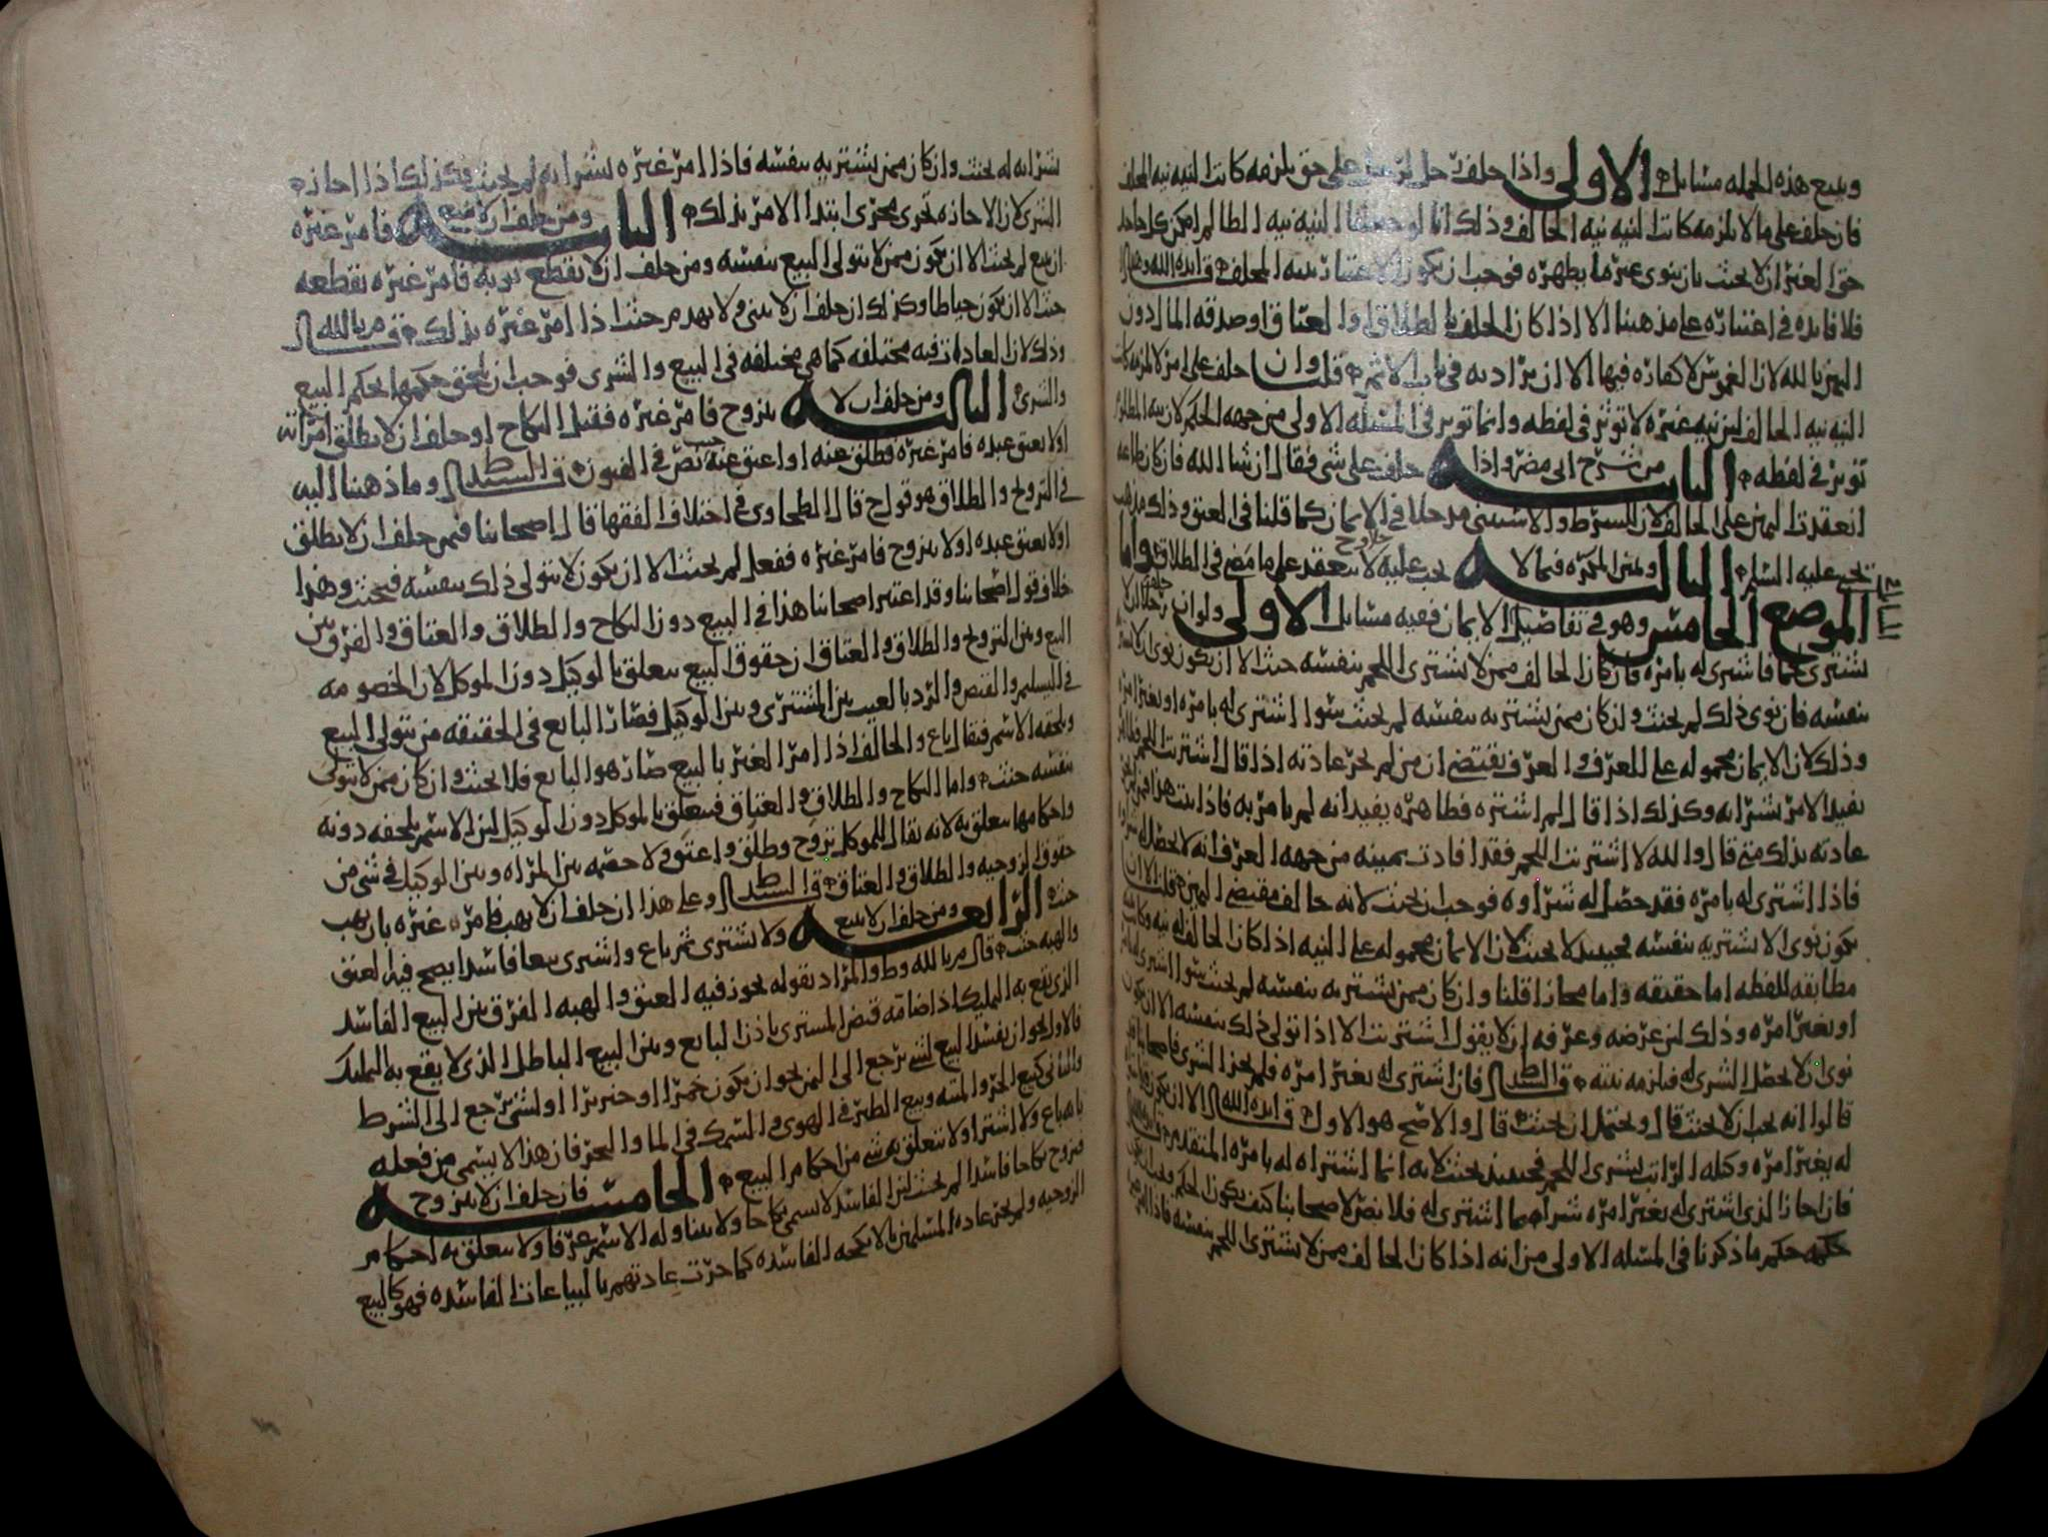 وينبع هذه الجمله مسائل الاولى واذا حلف رجل لرجل على حق يلزمه كانت النيه نيه المحلف
فان حلف على ما لا يلزمه كانت النيه نيه الحالف وذلك انا لو جعلنا النيه نيه الطالم امكن كل جاحد
حق الغير ان لا يحنث بان ينوى غير ما يظهره فوجب ان يكون الاعتبار بنيه المحلف
فلا فايده في اعتباره على مذهبنا الا اذا كان الحلف بالطلاق او العتاق او صدقه المال دون
اليمين بالله لان الغموس لا كفاره فيها الا ان يراد به في باب الاثم قلت وان حلف على امر لا يلزمه كانت
النيه نيه الحالف لان نيه غيره لا توثر في لفظه وانما توثر في المسئله الاولى من جهه الحكم لان نيه المطلوب
توثر في لفظه الثانيه من شرح ابي مضر واذا حلف على شي فقال ان شا الله فان كان طاعه
انعقدت اليمين على الحالف لان الشرط والاستثنى مدخلا في الايمان كما قلنا في العتق وذلك مذهب
يحيى عليه السلم الثالثه ويمين المكره فيما لا يجب عليه لا ينعقد على ما مضى في الطلاق واما
الموضع الخامس وهو في تفاصيل الايمان ففيه مسائل الاولى ولو ان رجلا حلف ان لا
يشترى لحما فاشترى له بامره فان كان الحالف ممن لا يشترى اللحم بنفسه حنث الا ان يكون نوى ان لا يشتريه
بنفسه فان نوى ذلك لم يحنث وان كان ممن يشتريه بنفسه لم يحنث سوا اشترى له بامره او بغير امره
وذلك لان الايمان محموله على العرف والعرف يقتضي ان من لم تجر عادته اذا قال اشتريت اللحم
يفيد الامر بشرائه وكذلك اذا قال لم اشتره فظاهره يفيد انه لم يامر به فاذا ثبت هذا فمن
عادته بذلك متى قال والله لا اشتريت اللحم فقد افادت يمينه من جهه العرف انه لا يحصل له
فاذا اشترى له بامره فقد حصل له شراوه فوجب ان يحنث لانه خالف مقتضى اليمين قلنا الا ان
يكون نوى الا يشتريه بنفسه فحينئذ لا يحنث لان الايمان محموله على النيه اذا كان الحالف له نيه وكانت
مطابقه للفظه اما حقيقه واما مجازا قلنا وان كان ممن يشتريه بنفسه لم يحنث سوا اشترى له بامره
او بغير امره وذلك لان غرضه وعرفه ان لا يقول اشتريت الا اذا تولى ذلك بنفسه الا ان يكون
نوى ان لا يحصل الشرى له فيلزمه نيته فان اشترى له بغير امره فلم يجز الشرى فاصحابنا
قالوا انه يجب ان لا يحنث قال ويحتمل ان يحنث قال والاصح هو الاول الا ان يكون
له بغير امره وكله الراتب بشرى اللحم فحينئذ يحنث لانه انما اشتراه له بامره المتقدم
فان اجاز الذي اشترى له بغير امره شراهما اشترى له فلا نص لاصحابنا كيف يكون الحكم
حكمه حكم ما ذكرنا في المسئله الاولى من انه اذا كان الحالف ممن لا يشترى اللحم بنفسه فاذا
بشرائه له يحنث وان كان ممن يشتريه بنفسه فاذا امر غيره بشرائه لم يحنث وكذلك اذا اجازه
الشرى لان الاجازه تجرى مجرى ابتدا الامر بذلك الثانيه ومن حلف ان لا يبيع فامر غيره
ان يبيع لم يحنث الا ان يكون ممن لا يتولى البيع بنفسه ومن حلف ان لا يقطع ثوبه فامر غيره بقطعه
حنث الا ان يكون خياطا وكذلك ان حلف ان لا يبني ولا يهدم حنث اذا امر غيره بذلك
وذلك لان العادات فيه مختلفه كما هي مختلفه في البيع والشرى فوجب ان يلحق حكمها بحكم البيع
والشرى الثالثه ومن حلف ان لا يتزوج فامر غيره فقبل النكاح او حلف ان لا يطلق امراته
او لا يعتق عبده فامر غيره فطلق عنه او اعتق عنه حنث نص في الفنون وما ذهبنا اليه
في التزويج والطلاق هو قول ح قال الطحاوى في اختلاف الفقها قال اصحابنا فيمن حلف ان لا يطلق
او لا يعتق عبده او لا يتزوج فامر غيره ففعل لم يحنث الا ان يكون لا يتولى ذلك بنفسه فيحنث وهذا
خلاف قول اصحابنا وقد اعتبر اصحابنا هذا في البيع دون النكاح والطلاق والعتاق والفرق بين
البيع وبين التزويج والطلاق والعتاق ان حقوق البيع يتعلق بالوكيل دون الموكل لان الخصومه
في التسليم والقبض والرد بالعيب بين المشترى وبين الوكيل فصار البايع في الحقيقه من يتولى البيع
ويلحقه الاسم فيقال باع والحالف اذا امر الغير بالبيع صار هو البايع فلا يحنث وان كان ممن لا يتولى
بنفسه حنث واما النكاح والطلاق والعتاق فيتعلق بالموكل دون الوكيل لان الاسم يلحقه دونه
واحكامها يتعلق به لانه يقال للموكل تزوج وطلق واعتق ولا خصمه بين المراه وبين الوكيل في شي من
حقوق الزوجيه والطلاق والعتاق وعلى هذا ان حلف ان لا يهب فامر غيره بان يهب
حنث الرابعه ومن حلف ان لا يبيع ولا يشترى ثم باع واشترى بيعا فاسدا يصح فيه العتق
والهبه حنث والمراد بقوله يجوز فيه العتق والهبه الفرق بين البيع الفاسد
الذي يقع به التمليك اذا ضامه قبض المشترى باذن البايع وبين البيع الباطل الذي لا يقع به التمليك
فالاول نحو ان يفسد البيع لشي يرجع الى الثمن نحو ان يكون خمرا او خنزيرا او لشي يرجع الى الشرط
والثاني كبيع الحر والميته وبيع الطير في الهوى والسمك في الما والبحر فان هذا لا يسمى من فعله
بائعا ولا اشترا ولا يتعلق به شي من احكام البيع الخامسه فان حلف ان لا يتزوج
فتزوج نكاحا فاسدا لم يحنث لان الفاسد لا يسمى نكاحا ولا يتناوله الاسم عرفا ولا يتعلق به احكام
الزوجيه ولم تجر عاده المسلمين بالانكحه الفاسده كما جرت عادتهم بالبياعات الفاسده فهو كالبيع